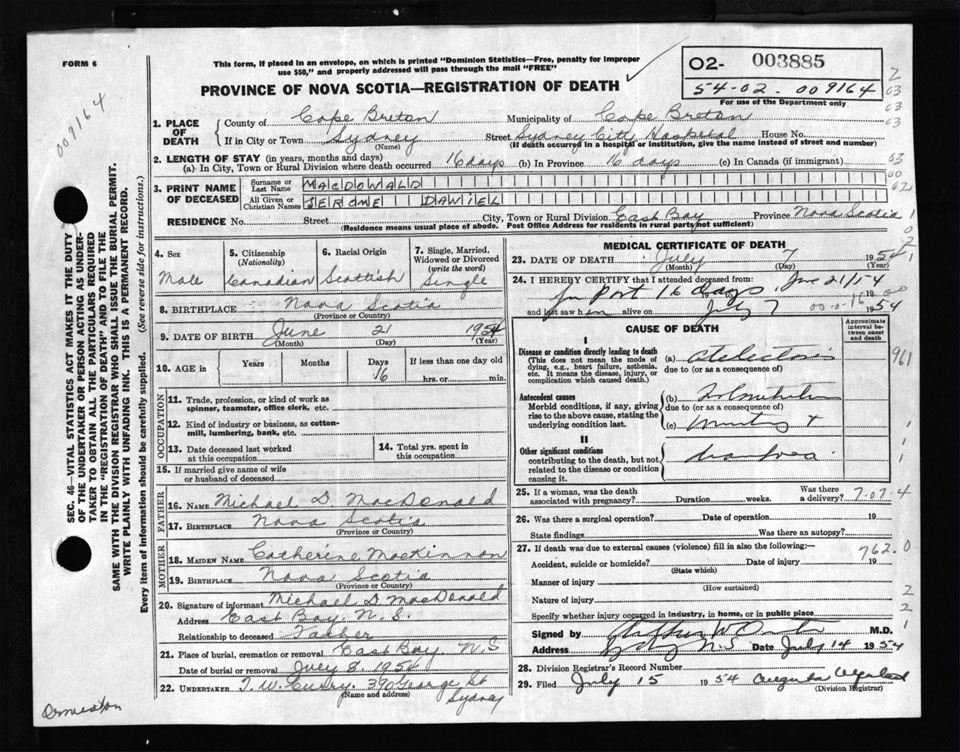 FORM 6
This form, if placed in an envelope, on which is printed "Dominion Statistics—Free, penalty for improper
use $50," and properly addressed will pass through the mail "FREE"
PROVINCE OF NOVA SCOTIA—REGISTRATION OF DEATH
O2- 003885
54-02. 009164
For use of the Department only
009164
1. PLACE OF DEATH
County of Cape Breton Municipality of Cape Breton
If in City or Town Sydney Street Sydney City Hospital House No.
(Name) (If death occurred in a hospital or institution, give the name instead of street and number)
2. LENGTH OF STAY (in years, months and days)
(a) In City, Town or Rural Division where death occurred 16 days (b) In Province 16 days (c) In Canada (if immigrant)
3. PRINT NAME OF DECEASED
Surname or Last Name MACDONALD
All Given or Christian Names JEROME DANIEL
RESIDENCE No. Street City, Town or Rural Division East Bay Province Nova Scotia
(Residence means usual place of abode. Post Office Address for residents in rural parts not sufficient)
4. Sex
Male
5. Citizenship
(Nationality)
Canadian
6. Racial Origin
Scottish
7. Single, Married, Widowed or Divorced
(write the word)
Single
8. BIRTHPLACE Nova Scotia
(Province or Country)
9. DATE OF BIRTH June 21 1954
(Month) (Day) (Year)
10. AGE in Years Months Days 16 If less than one day old
hrs. or min.
OCCUPATION
11. Trade, profession, or kind of work as
spinner, teamster, office clerk, etc.
12. Kind of industry or business, as cotton-
mill, lumbering, bank, etc.
13. Date deceased last worked
at this occupation
14. Total yrs. spent in
this occupation
15. If married give name of wife
or husband of deceased
FATHER
16. NAME Michael D. MacDonald
17. BIRTHPLACE Nova Scotia
(Province or Country)
MOTHER
18. MAIDEN NAME Catherine MacKinnon
19. BIRTHPLACE Nova Scotia
(Province or Country)
20. Signature of informant Michael D MacDonald
Address East Bay N.S.
Relationship to deceased Father
21. Place of burial, cremation or removal East Bay N S
Date of burial or removal July 8. 1954
22. UNDERTAKER T. W. Curry. 390 George St
(Name and address) Sydney
MEDICAL CERTIFICATE OF DEATH
23. DATE OF DEATH July 7 1954
(Month) (Day) (Year)
24. I HEREBY CERTIFY that I attended deceased from:
16 days 21/54
and last saw h alive on July 7 1954
CAUSE OF DEATH
Approximate interval between onset and death
I
Disease or condition directly leading to death
(This does not mean the mode of
dying, e.g., heart failure, asthenia,
etc. It means the disease, injury, or
complication which caused death.)
(a)
due to (or as a consequence of)
Antecedent causes
Morbid conditions, if any, giving
rise to the above cause, stating the
underlying condition last.
(b)
due to (or as a consequence of)
(c)
II
Other significant conditions
contributing to the death, but not
related to the disease or condition
causing it.
961
25. If a woman, was the death
associated with pregnancy? Duration weeks. Was there
a delivery?
7-07.4
26. Was there a surgical operation? Date of operation 19
State findings Was there an autopsy?
27. If death was due to external causes (violence) fill in also the following:—
762.0
Accident, suicide or homicide? Date of injury 19
(State which)
Manner of injury
(How sustained)
Nature of injury
Specify whether injury occurred in industry, in home, or in public place
Signed by M.D.
Address N S Date July 14 1954
28. Division Registrar's Record Number
29. Filed July 15 1954
(Division Registrar)
SEC. 46—VITAL STATISTICS ACT MAKES IT THE DUTY
OF THE UNDERTAKER OR PERSON ACTING AS UNDER-
TAKER TO OBTAIN ALL THE PARTICULARS REQUIRED
IN THE "REGISTRATION OF DEATH" AND TO FILE THE
SAME WITH THE DIVISION REGISTRAR WHO SHALL ISSUE THE BURIAL PERMIT.
WRITE PLAINLY WITH UNFADING INK. THIS IS A PERMANENT RECORD.
Every item of information should be carefully supplied. (See reverse side for instructions.)